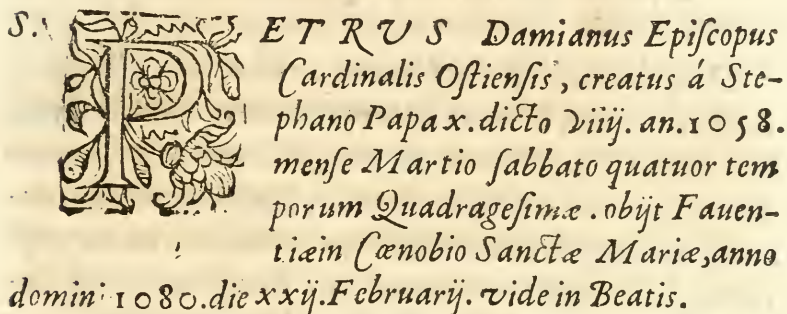 S. PETRUS Damianus Epiſcopus
Cardinalis Oſtienſis, creatus á Ste-
phano Papa x. dicto viiij. an. 1058.
menſe Martio ſabbato quatuor tem
porum Quadrageſimæ. obijt Faven-
tiæin Cœnobio Sanctæ Mariæ, anno
domini 1080. die xxij. Februarij. vide in Beatis.